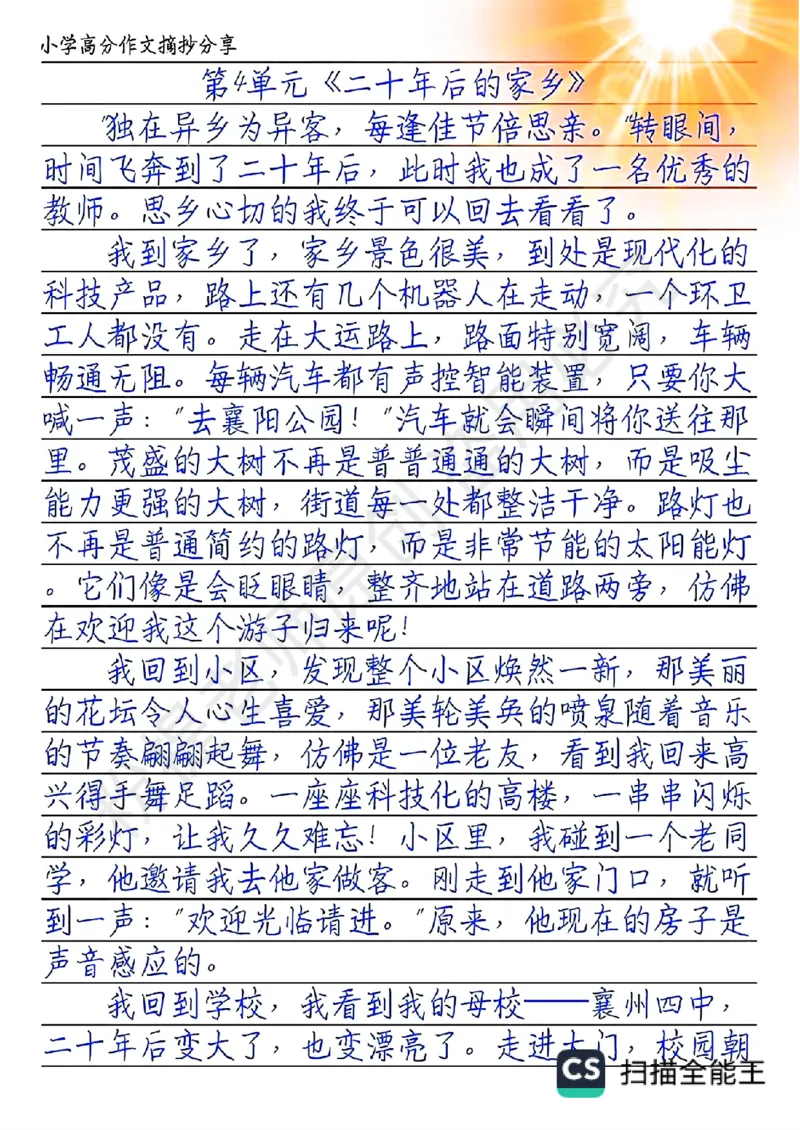 小学高分作文摘抄分享
第4单元《二十年后的家乡》
“独在异乡为异客，每逢佳节倍思亲。”转眼间，
时间飞奔到了二十年后，此时我也成了一名优秀的
教师。思乡心切的我终于可以回去看看了。
我到家乡了，家乡景色很美，到处是现代化的
科技产品，路上还有几个机器人在走动，一个环卫
工人都没有。走在大运路上，路面特别宽阔，车辆
畅通无阻。每辆汽车都有声控智能装置，只要你大
喊一声：“去襄阳公园！”汽车就会瞬间将你送往那
里。茂盛的大树不再是普普通通的大树，而是吸尘
能力更强的大树，街道每一处都整洁干净。路灯也
不再是普通简约的路灯，而是非常节能的太阳能灯
。它们像是会眨眼睛，整齐地站在道路两旁，仿佛
在欢迎我这个游子归来呢！
我回到小区，发现整个小区焕然一新，那美丽
的花坛令人心生喜爱，那美轮美奂的喷泉随着音乐
的节奏翩翩起舞，仿佛是一位老友，看到我回来高
兴得手舞足蹈。一座座科技化的高楼，一串串闪烁
的彩灯，让我久久难忘！小区里，我碰到一个老同
学，他邀请我去他家做客。刚走到他家门口，就听
到一声：“欢迎光临请进。”原来，他现在的房子是
声音感应的。
我回到学校，我看到我的母校——襄州四中，
二十年后变大了，也变漂亮了。走进大门，校园朝
CS 扫描全能王